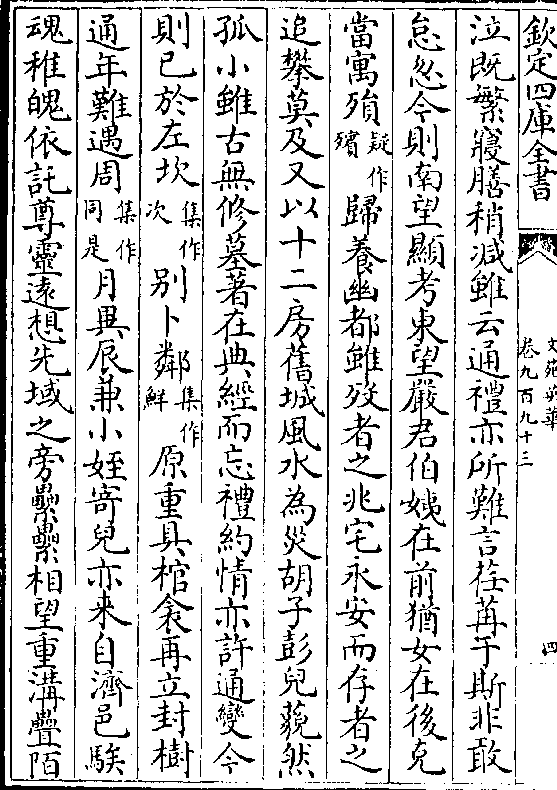 欽定四庫全書
文苑英華
卷九百九十三
四
泣既繁寢膳稍減雖云通禮亦所難言荏苒于斯非敢
怠忽今則南望顯考東望嚴君伯姊在前猶女在後克
當寓殯疑作殯歸養幽都雖歿者之兆宅永安而存者之
追攀莫及又以十二房舊城風水為災胡子彭兒藐然
孤小雖古無修墓著在典經而忘禮約情亦許通變今
則已於左坎集作次别卜鄰集作鮮原重具棺衾再立封樹
通年難遇周集作同是月異辰兼小姪寄兒亦來自濟邑騃
魂稚魄依託尊靈遠想先域之旁纍纍相望重溝疊陌